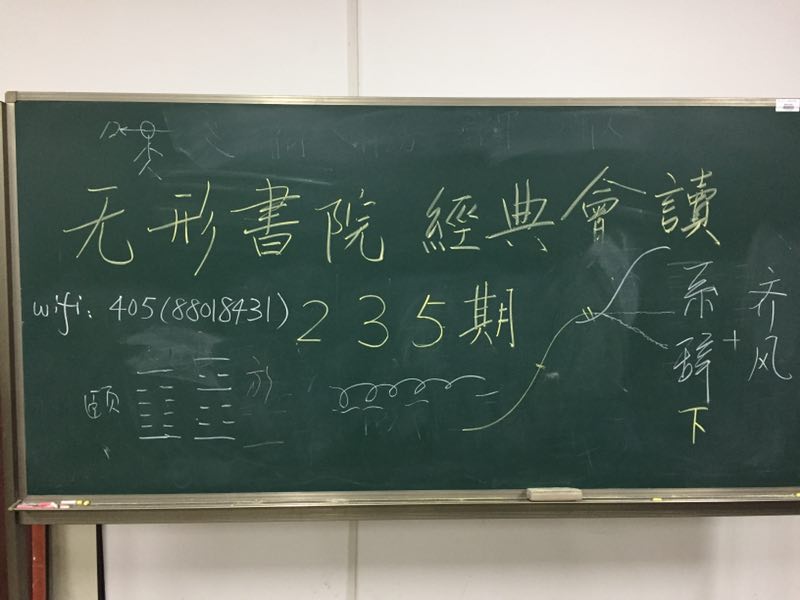 无形書院 經典會讀
wifi: 405(88018431)
235期
系辞下
+
齐风
頤